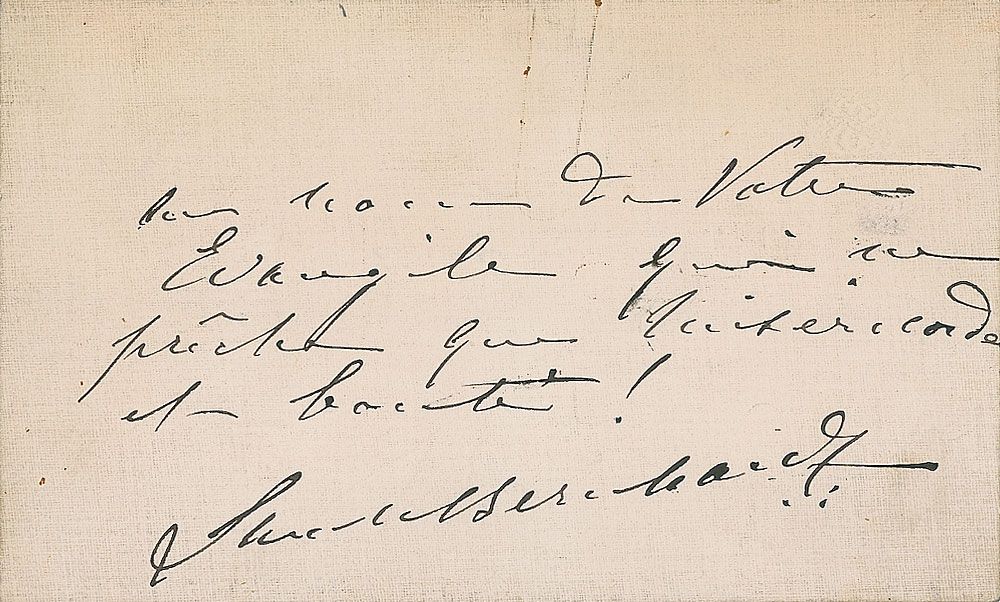 au nom de Votre
Evangile qui ne
prêche que misericorde
et bonté !
Sarah Bernhardt